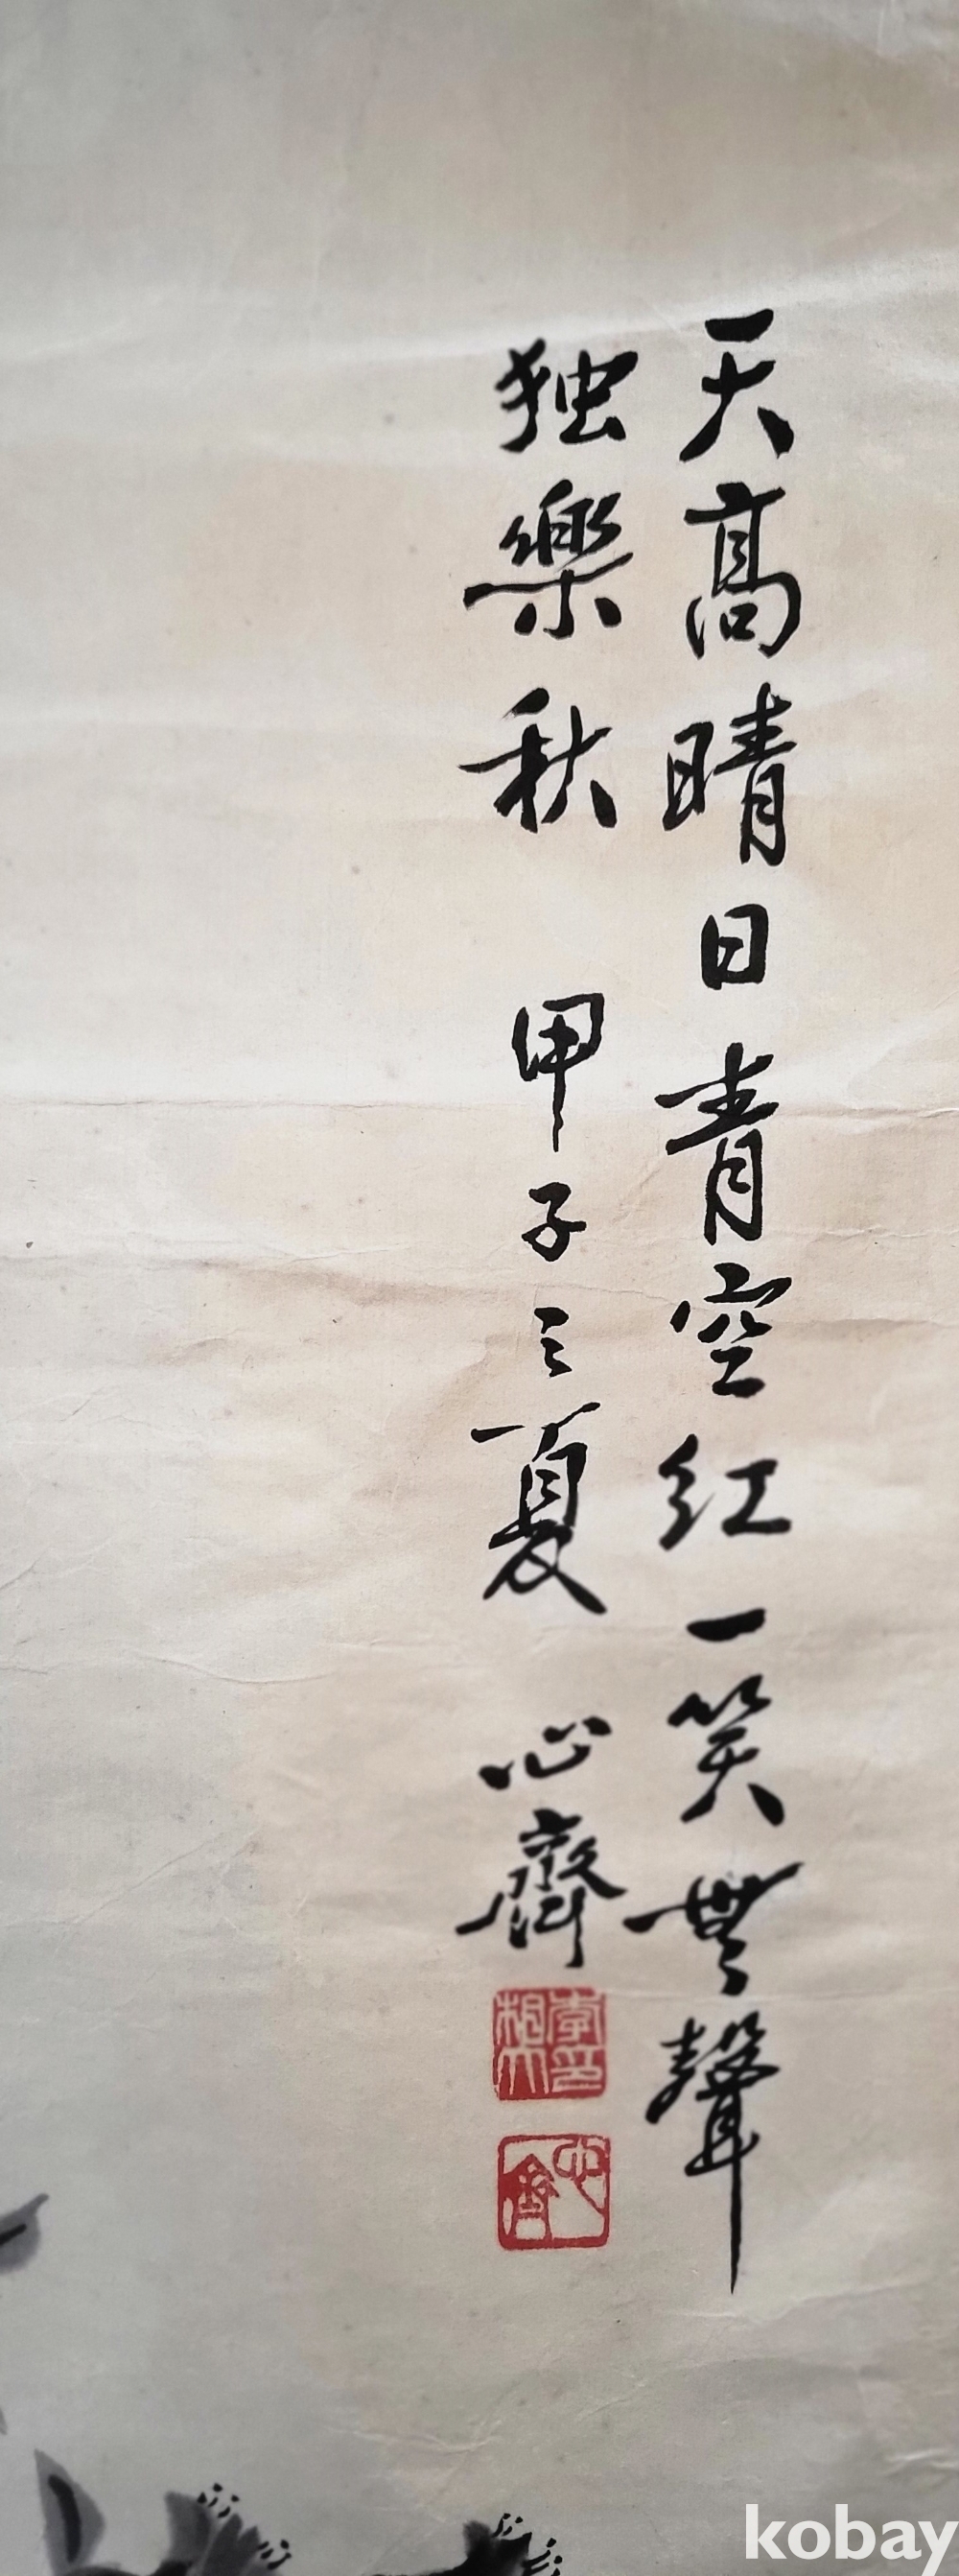 天高晴日青空紅一笑無聲
独樂秋 甲子之夏 心齋
kobay